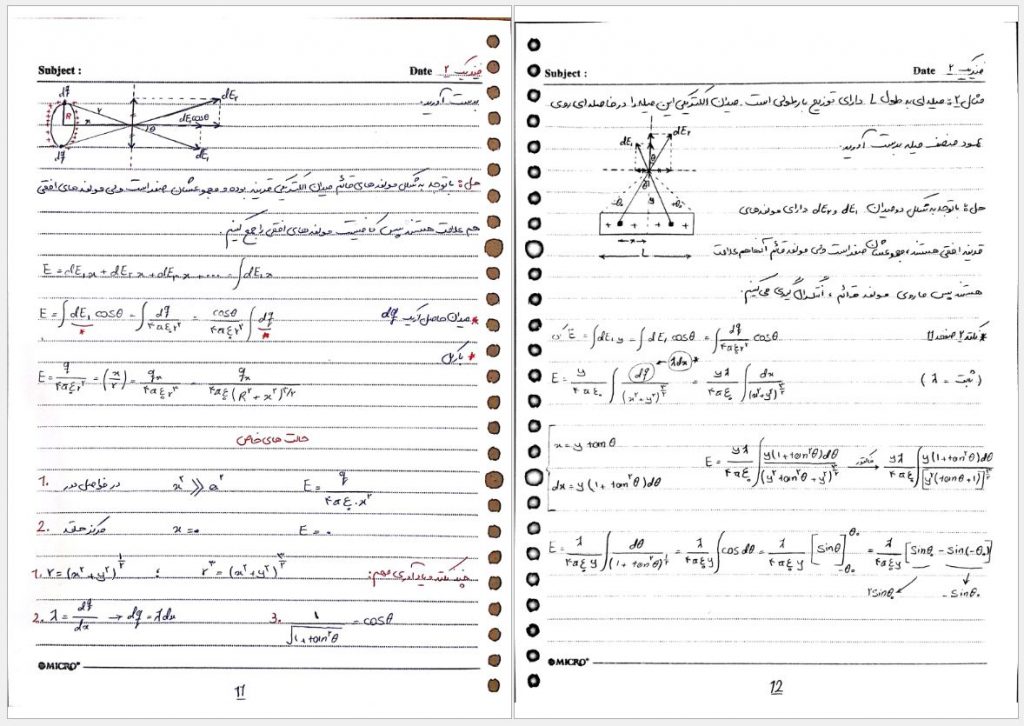 Subject :
Date فیزیک ۲
بدست آورید.
dq r dE₂
R x θ dE₁cosθ
dq dE₁
حل: با توجه به شکل مولفه های قائم میدان الکتریکی قرینه بوده و مجموعشان صفر است ولی مولفه های افقی
هم علامت هستند پس کافیست مولفه های افقی را جمع کنیم.
E = dE₁x + dE₂x + dE₃x + .... = ∫dE₁x
E = ∫dE₁ cosθ = ∫ dq/۴πε۰r² = cosθ/۴πε۰r² ∫dq *میدان حاصل از یک dq
* بار کل
E = q/۴πε۰r² = (x/r) = qx/۴πε۰r³ = qx/۴πε۰(R² + x²)^۳/۲
حالت های خاص
1. در فواصل دور x² ≫ a² E = q/۴πε۰.x²
2. مرکز حلقه x = ۰ E = ۰
چند نکته و یادآوری مهم:
1. r = (x² + y²)^۱/۲ ; r³ = (x² + y²)^۳/۲
2. λ = dq/dx → dq = λdx 3. 1/√1 + tan²θ = cosθ
MICRO
11
Subject :
Date فیزیک ۲
مثال ۲: میله ای به طول L دارای توزیع بار طولی است. میدان الکتریکی این میله را در فاصله ای روی
عمود منصف میله بدست آورید.
dE₁ dE₂
θ
-θ۰ y θ۰
+ + + +
x
L
حل: با توجه به شکل دو میدان dE₁ و dE₂ دارای مولفه های
قرینه افقی هستند، مجموعشان صفر است ولی مولفه قائم آنها هم علامت
هستند پس ما روی مولفه قائم، انتگرال گیری می کنیم.
*نکته ۲ صفحه 11 E = ∫dE₁y = ∫dE₁ cosθ = ∫ dq/۴πε۰r² cosθ
E = y/۴πε۰ ∫ dq/(x²+y²)^۳/۲ ← λdx * = yλ/۴πε۰ ∫ dx/(x²+y²)^۳/۲ ( ثابت = λ )
x = y tanθ
dx = y(1 + tan²θ)dθ
E = yλ/۴πε۰ ∫ y(1+tan²θ)dθ/(y²tan²θ+y²)^۳/۲ فاکتور → yλ/۴πε۰ ∫ y(1+tan²θ)dθ/[y²(tan²θ+1)]^۳/۲
E = λ/۴πε۰y ∫ dθ/(1+tan²θ)^۱/۲ = λ/۴πε۰y ∫cosθdθ = λ/۴πε۰y [sinθ]^θ۰_-θ۰ = λ/۴πε۰y [sinθ۰ - sin(-θ۰)]
۲sinθ۰ -sinθ۰
MICRO
12